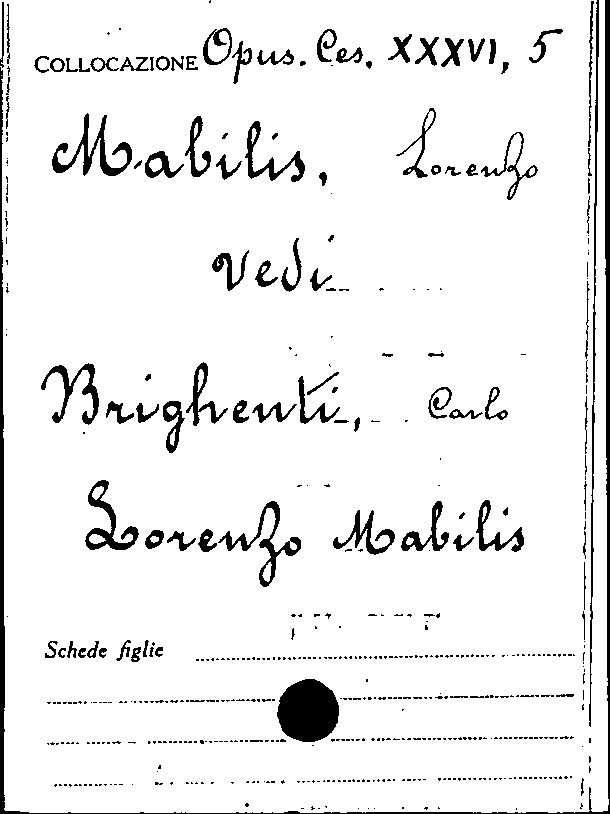 COLLOCAZIONE Opus. Ces. XXXVI, 5
Mabilis, Lorenzo
Vedi
Brighenti, Carlo
Lorenzo Mabilis
Schede figlie